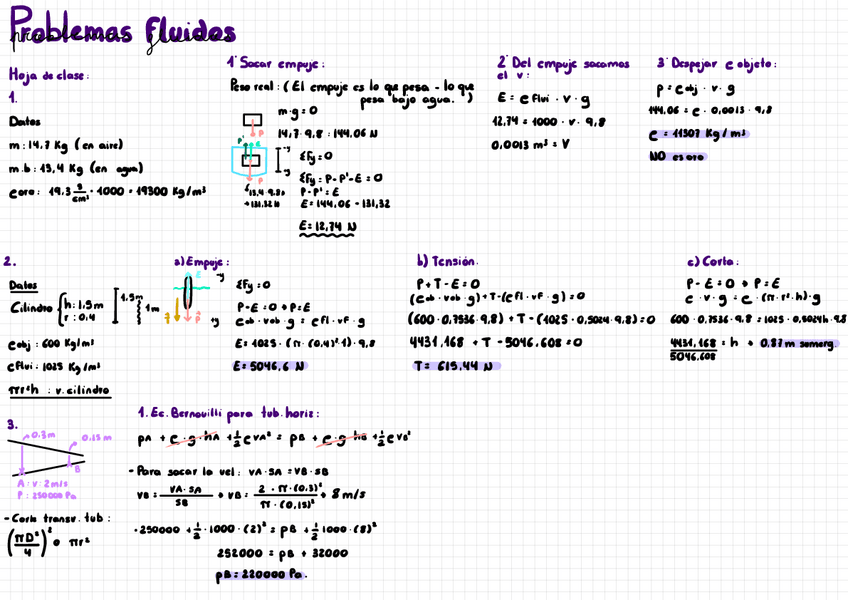 Problemas Fluidos
problemas fluidos
Hoja de clase:
1.
Datos
m: 14,7 Kg (en aire)
m.b: 13,4 Kg (en agua)
ρoro: 19,3 g/cm³ · 1000 = 19300 Kg/m³
1º Sacar empuje:
Peso real: (El empuje es lo que pesa - lo que
pesa bajo agua. )
m·g = 0
14,7·9,8 : 144,06 N
P
P' E
-y
+y
P
13,4·9,8 =
= 131,32 N
ΣFy = 0
ΣFy = P - P' - E = 0
P - P' = E
E = 144,06 - 131,32
E = 12,74 N
2º Del empuje sacamos
el v:
E = ρ flui · v · g
12,74 = 1000 · v · 9,8
0,0013 m³ = V
3º Despejar ρ objeto:
p = ρobj · v · g
144,06 = ρ · 0,0013 · 9,8
ρ = 11307 Kg/m³
NO es oro
2.
Datos
Cilindro { h: 1,5m
r: 0,4
1,5m
1m
ρobj: 600 Kg/m³
ρflui: 1025 Kg/m³
πr²h : v. cilindro
a) Empuje:
E
-y
T
P
+y
ΣFy = 0
P - E = 0 → P = E
ρob · vob · g = ρfl · vF · g
E = 1025 · (π · (0,4)²·1) · 9,8
E = 5046,6 N
b) Tensión.
P + T - E = 0
(ρob · vob · g) + T - (ρfl · vF · g) = 0
(600 · 0,7536 · 9,8) + T - (1025 · 0,5024 · 9,8) = 0
4431,168 + T - 5046,608 = 0
T = 615,44 N
c) Corta:
P - E = 0 → P = E
ρ · v · g = ρ · (π · r² · h) · g
600 · 0,7536 · 9,8 = 1025 · 0,5024h · 9,8
4431,168 / 5046,608 = h → 0,87m somerg.
3.
0,3m
0,15m
B
A: v: 2m/s
P: 250000 Pa
- Corte transv. tub:
(πD²/4)² o πr²
1. Ec. Bernouilli para tub. horiz:
pA + ρ·g·hA + 1/2 ρ vA² = pB + ρ·g·hB + 1/2 ρ vB²
- Para sacar la vel: vA · SA = vB · SB
vB = vA · SA / SB → vB = 2 · π · (0,3)² / π · (0,15)² → 8 m/s
· 250000 + 1/2 · 1000 · (2)² = pB + 1/2 1000 · (8)²
252000 = pB + 32000
pB = 220000 Pa.